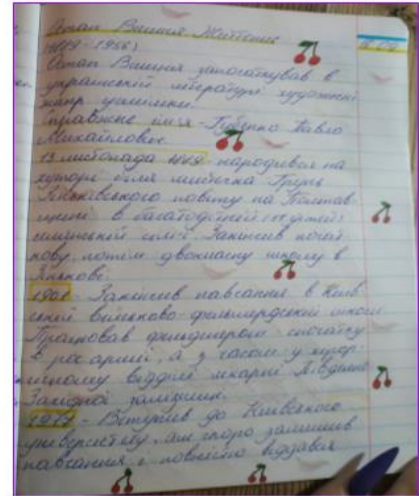 Остап Вишня Життєпис
(1889-1956)
Остап Вишня започаткував в
українській літературі художній
жанр усмішки.
Справжнє ім'я - Губенко Павло
Михайлович
13 листопада 1889 народився на
хуторі біля містечка Грунь
Зіньківського повіту на Полтав-
щині в багатодітній
селянській сім'ї. Закінчив почат
кову, потім двокласну школу в
Зінькові.
- Закінчив навчання в Київ
ській військово-фельдшерській школі
Працював фельдшером спочатку
в рос армії, а з часом у хірур-
гічному відділі лікарні Південно
Західної залізниці.
1917 - Вступив до Київського
університету, але скоро залишив
навчання і повністю віддався